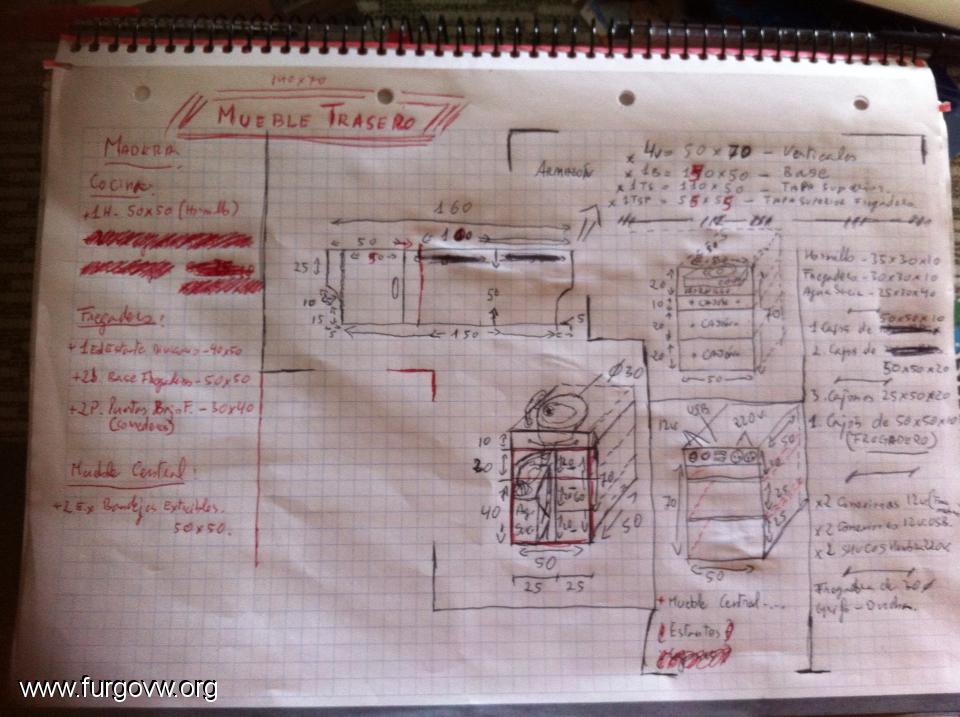 140x70
MUEBLE TRASERO
MADERA
COCINA:
+1H- 50x50 (Hornillo)
Fregadero:
+1 Estante Divisorio - 40x50
+2b. Base Fregadero - 50x50
+2P. Puertas Bajo F. - 30x40
(Correderas)
Mueble Central:
+2 Ex Bandejas Extraibles.
50x50.
ARMAZÓN
x 4v = 50 x 70 - Verticales
x 1B = 150x50 - Base
x 1TS = 110x50 - TAPA Superior.
x 1TSF = 55x55 - TAPA Superior Fregadero
160
100
50
25
10
15
5
50
150
5
20
10
20
20
+ CAJÓN +
+ CAJÓN
+ CAJÓN
70
50
Hornillo - 35x30x10
Fregadero - 30x30x10
Agua Sucia - 25x30x40
50x50x10
1 Cajas de
2. Cajas de
50x50x20
3. Cajones 25x50x20
1. Cajas de 50x50x10
(FREGADERO)
x2 Conexiones 12v
x2 Conexiones 12v USB.
x2
Fregadero de
Grifo - Ducha.
Ø30
10
20
40
70
50
50
25
25
USB
12v
220v.
70
50
25
25
50
+ Mueble Central....
(Estantes)
www.furgovw.org